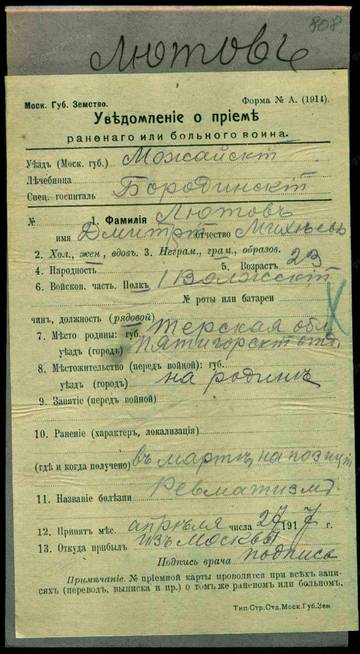 808
Лютовъ
Моск. Губ. Земство. Форма № А. (1914).
Увѣдомленіе о пріемѣ
раненаго или больного воина.
Уѣздъ (Моск. губ.) Можайскій
Лѣчебница
Спец. госпиталь Бородинскій
№ 1. Фамилія Лютовъ
имя Дмитрій отчество
2. Хол., жен., вдов. 3. Неграм., грам., образов.
4. Народность 5. Возрастъ 23
6. Войскон. часть. Полкъ 1 Волжскій
№ роты или батареи
чинъ, должность (рядовой)
7. Мѣсто родины: губ. Терская обл.
уѣздъ (городъ) Пятигорскій отд.
8. Мѣстожительство (передъ войной): губ.
уѣздъ (городъ) на родинѣ
9. Занятіе (передъ войной)
10. Раненіе (характеръ, локализація)
(гдѣ и когда получено) въ мартѣ, на позиціи
11. Названіе болѣзни Ревматизмъ
12. Принятъ мѣс. апрѣля числа 27 1917 г.
13. Откуда прибылъ изъ Москвы
Подпись врача подпись
Примѣчаніе. № пріемной карты проводится при всѣхъ запи-
сяхъ (перевод., выписка и пр.) о томъ же раненомъ или больномъ.
Тип. Стр. Отд. Моск. Губ. Зем.